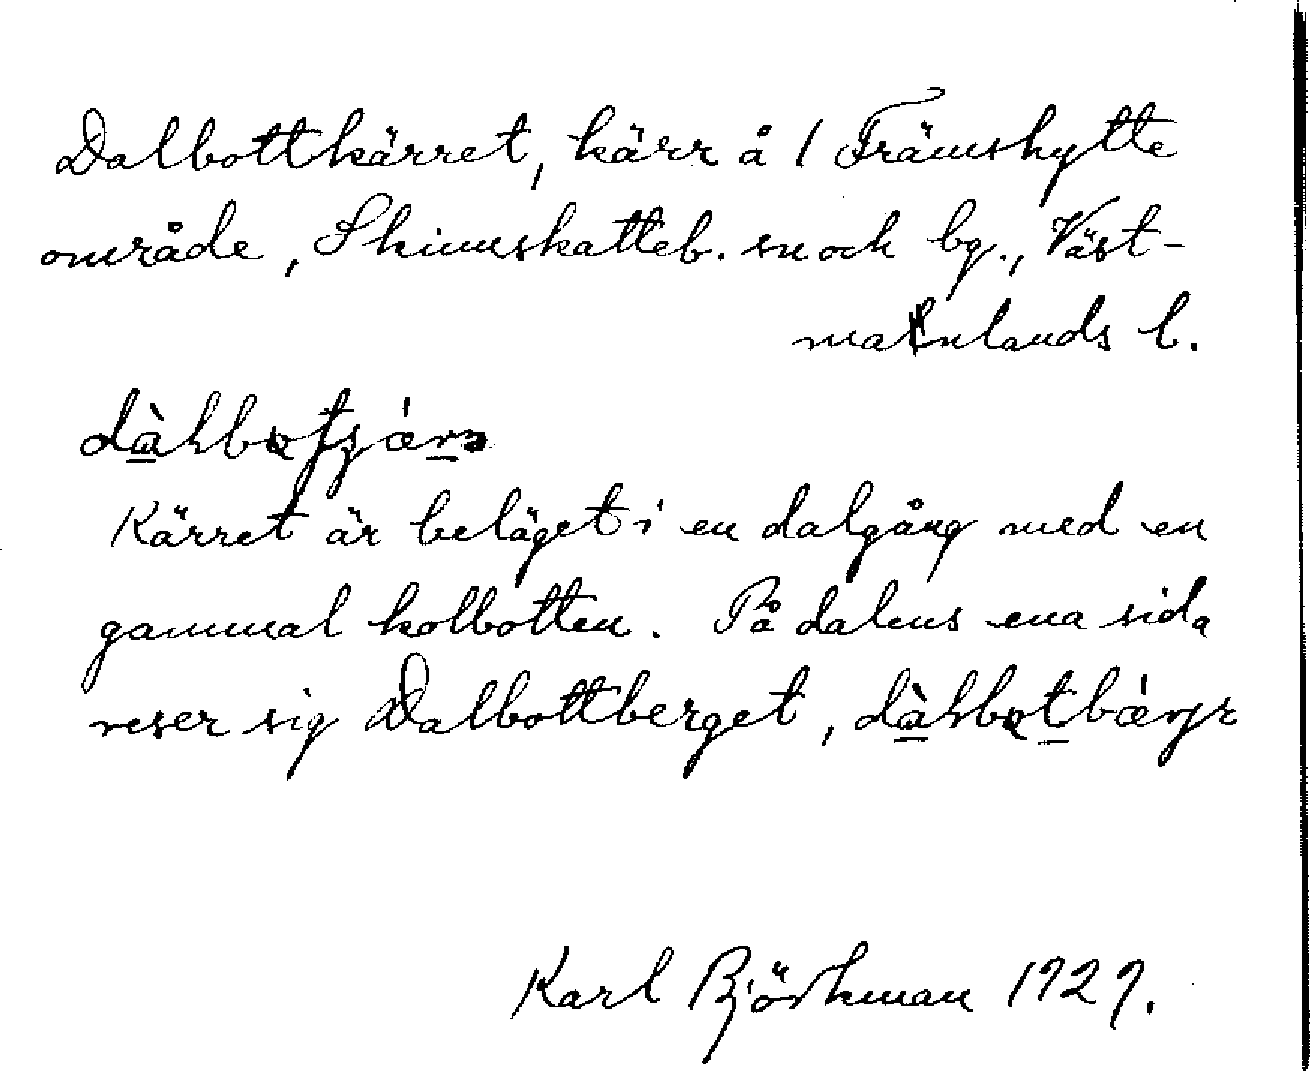 Dalbottkärret, kärr å 1 Främshytte
område, Skinnskatteb. sn och bg., Väst-
manlands l.
Kärret är beläget i en dalgång med en
gammal kolbotten. På dalens ena sida
reser sig Dalbottberget,
Karl Björkman 1929.